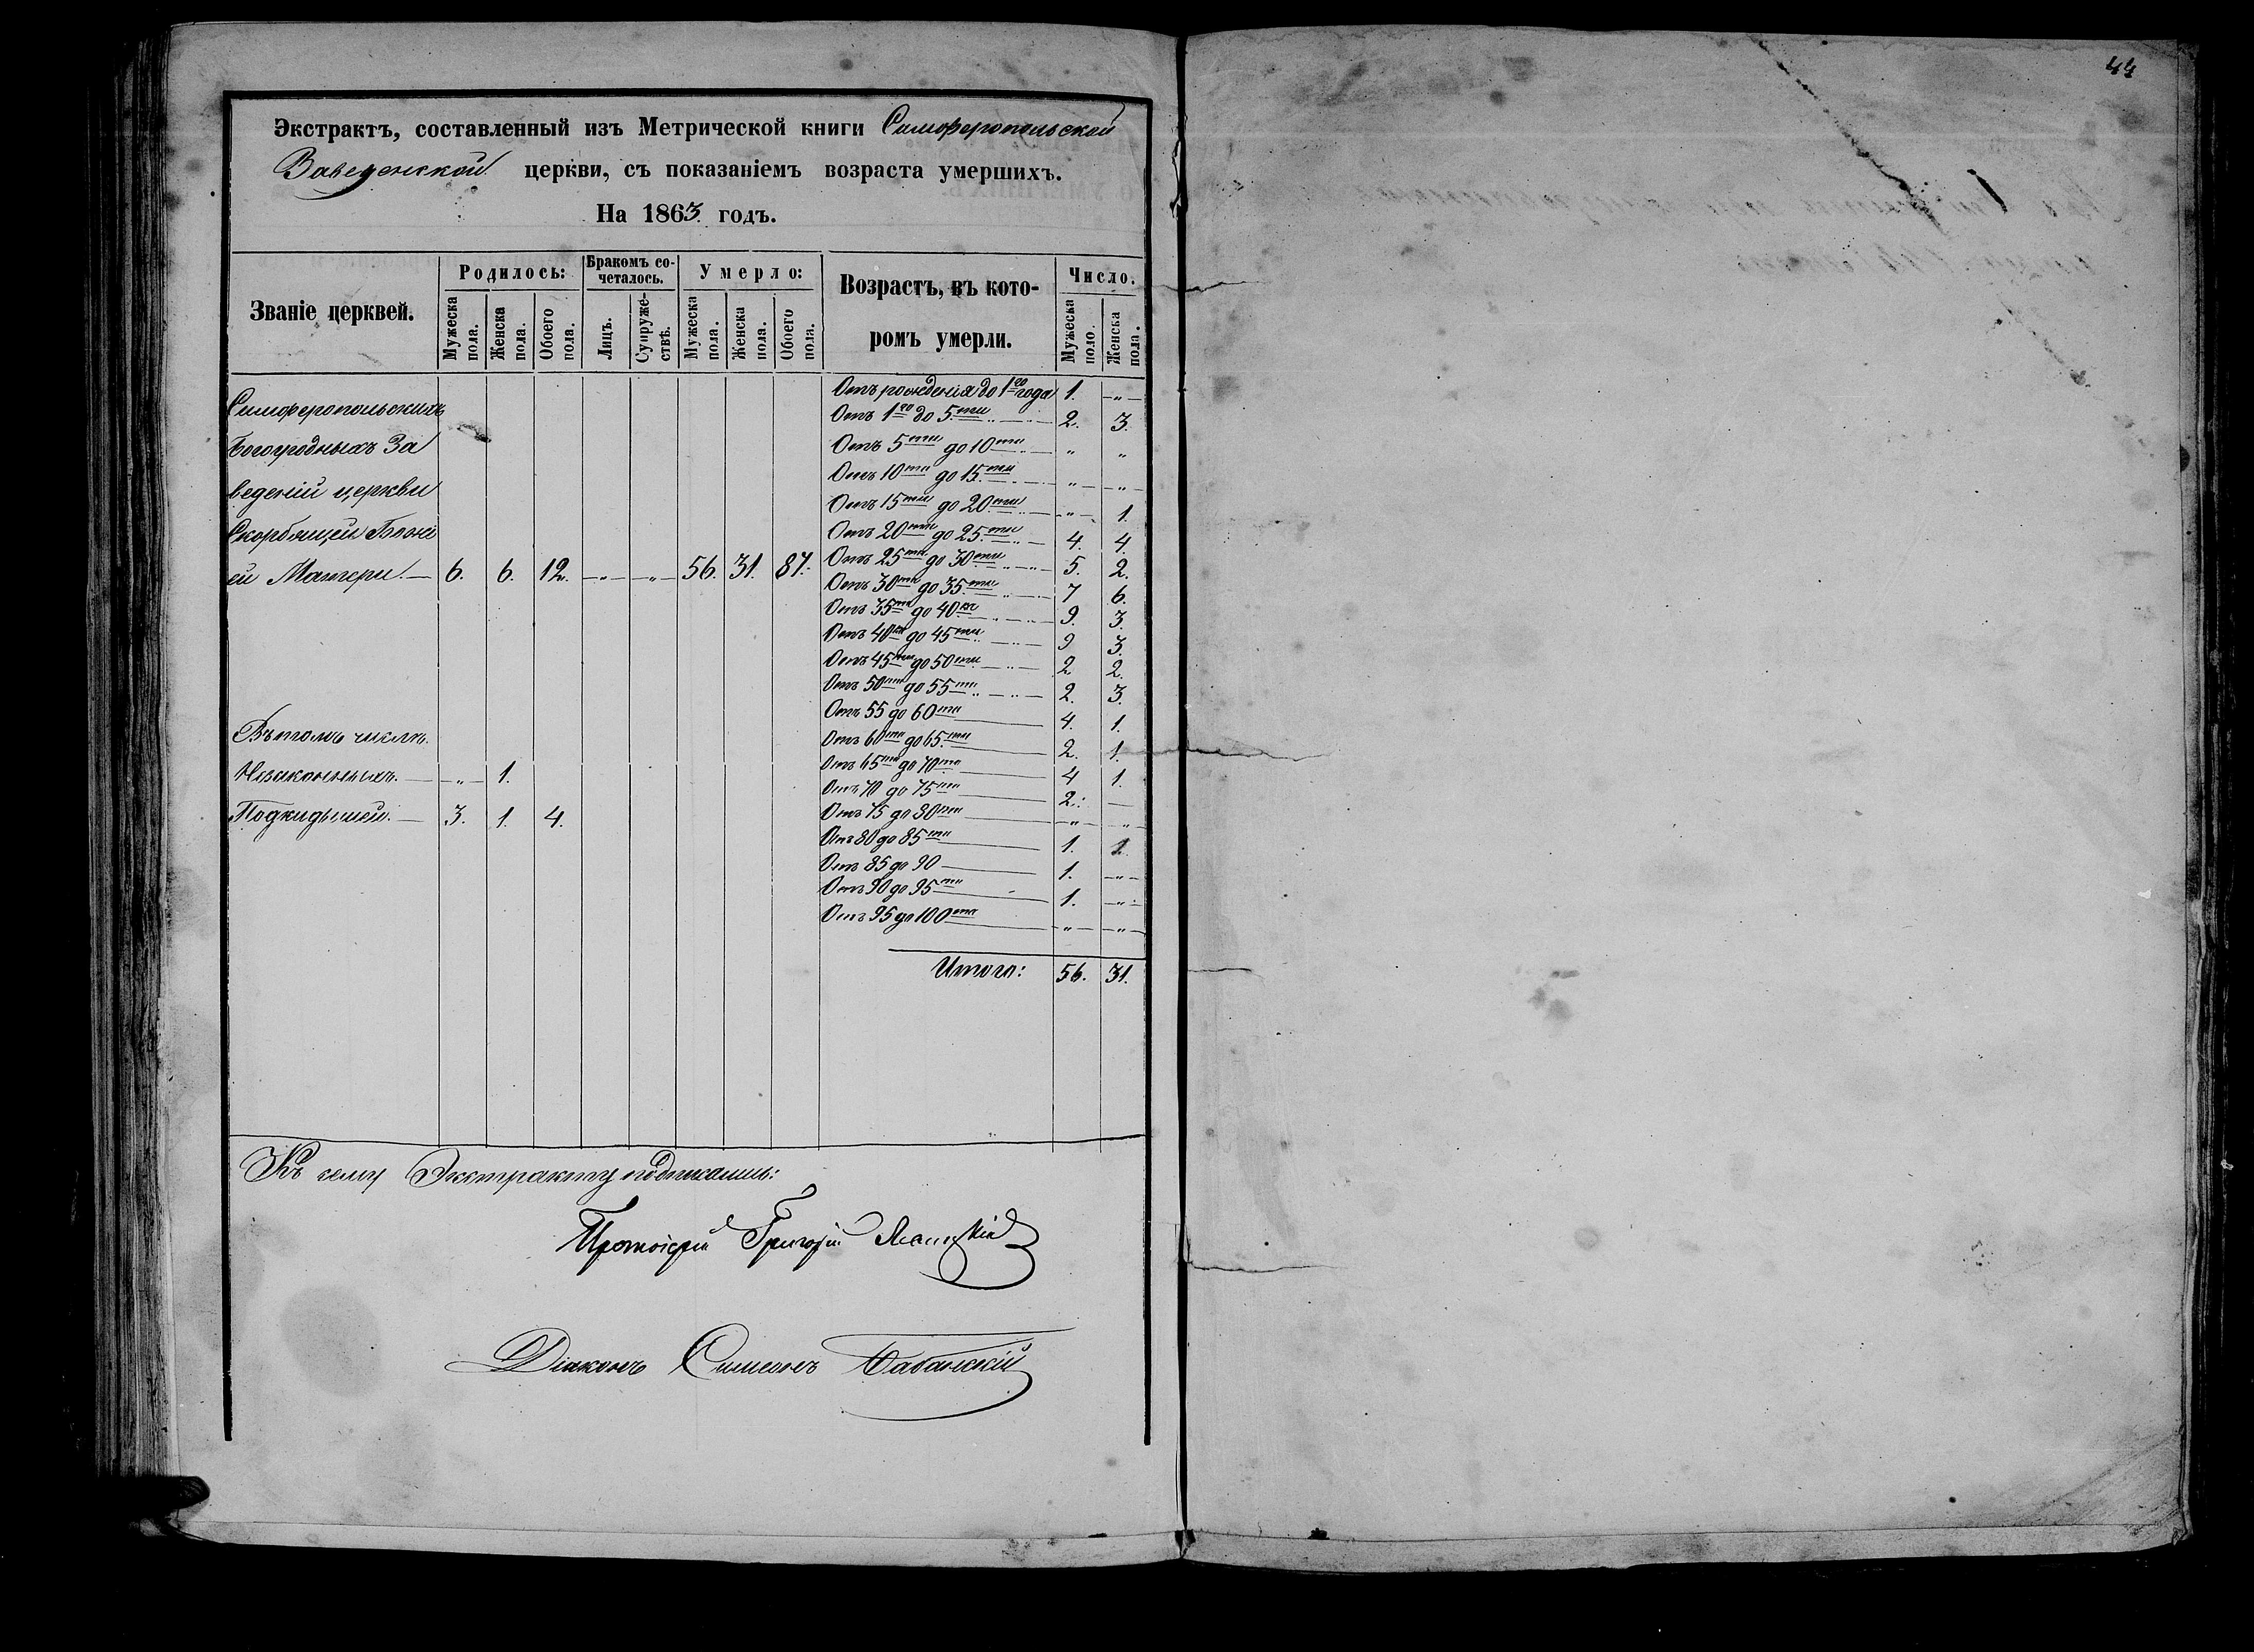 44
Экстрактъ, составленный изъ Метрической книги Симферопольской
Заведенской церкви, съ показаніемъ возраста умершихъ.
На 1863. годъ.
Званіе церквей.
Родилось:
Мужеска пола.
Женска пола.
Обоего пола.
Бракомъ сочеталось.
Лицъ.
Супружествъ.
Умерло:
Мужеска пола.
Женска пола.
Обоего пола.
Возрастъ, въ которомъ умерли.
Число.
Мужеска поло.
Женска пола.
Симферопольскихъ
Богоугодныхъ За
веденій церкви
Скорбящей Божі
ей Матери. — 6. 6. 12. — „ — — „ — 56. 31. 87.
Въ томъ числѣ.
Незаконныхъ. — „ — 1.
Подкидышей. — 3. 1. 4.
Отъ рожденія до 1го года 1. — „ —
Отъ 1го до 5ти 2. 3.
Отъ 5ти до 10ти „ „
Отъ 10ти до 15ти „ — „ —
Отъ 15ти до 20ти — „ — 1.
Отъ 20ти до 25ти 4. 4.
Отъ 25ти до 30ти 5. 2.
Отъ 30ти до 35ти 7 6.
Отъ 35ти до 40ка 9. 3.
Отъ 40ка до 45ти 9 3.
Отъ 45ти до 50ти 2 2.
Отъ 50ти до 55ти 2. 3.
Отъ 55 до 60ти 4. 1.
Отъ 60ти до 65ти 2. 1.
Отъ 65ти до 70ти 4 1.
Отъ 70 до 75ти 2. —
Отъ 75 до 80ти — „ — „
Отъ 80 до 85ти 1. 1.
Отъ 85 до 90 1. — „ —
Отъ 90 до 95ти 1. — „ —
Отъ 95 до 100та — „ — — „ —
Итого: 56. 31.
Къ сему Экстракту подписались:
Протоіерей Григорій
Діаконъ Симеонъ Бабанскій